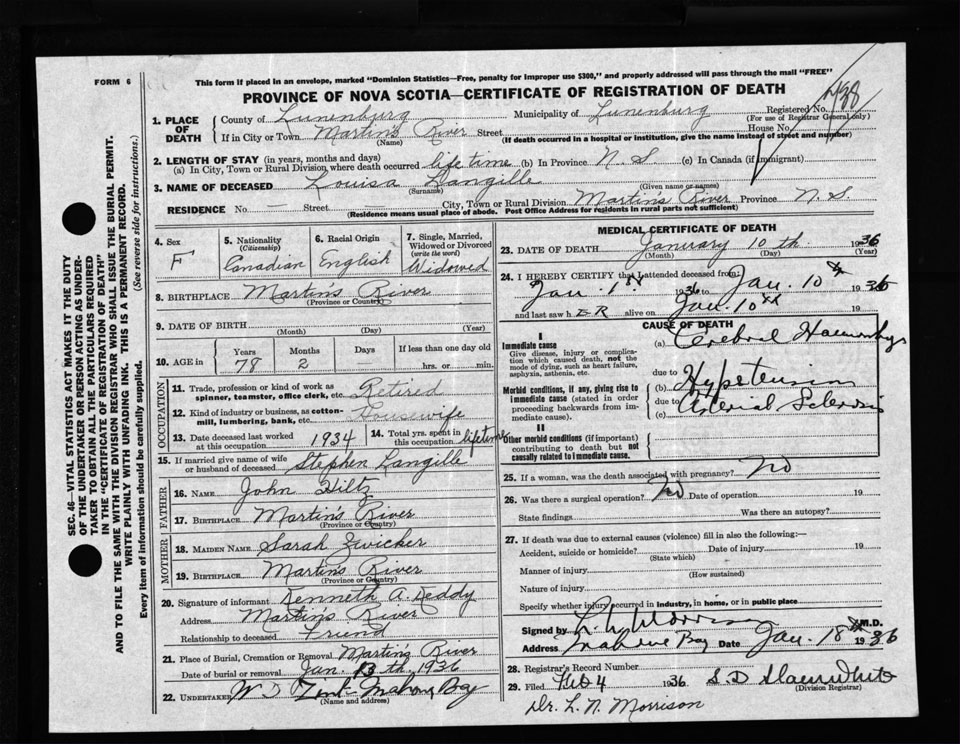 FORM 6
This form if placed in an envelope, marked "Dominion Statistics—Free, penalty for improper use $300," and properly addressed will pass through the mail "FREE"
PROVINCE OF NOVA SCOTIA—CERTIFICATE OF REGISTRATION OF DEATH
SEC. 46—VITAL STATISTICS ACT MAKES IT THE DUTY
OF THE UNDERTAKER OR PERSON ACTING AS UNDER-
TAKER TO OBTAIN ALL THE PARTICULARS REQUIRED
IN THE "CERTIFICATE OF REGISTRATION OF DEATH"
AND TO FILE THE SAME WITH THE DIVISION REGISTRAR WHO SHALL ISSUE THE BURIAL PERMIT.
WRITE PLAINLY WITH UNFADING INK. THIS IS A PERMANENT RECORD.
Every item of information should be carefully supplied. (See reverse side for instructions.)
1. PLACE OF DEATH
County of Lunenburg Municipality of Lunenburg Registered No.
(For use of Registrar General only)
If in City or Town Martin's River Street House No.
(Name) (If death occurred in a hospital or institution, give the name instead of street and number)
2. LENGTH OF STAY (in years, months and days)
(a) In City, Town or Rural Division where death occurred life time (b) In Province N. S (c) In Canada (if immigrant)
3. NAME OF DECEASED Louisa Langille
(Surname) (Given name or names)
RESIDENCE No. — Street — City, Town or Rural Division Martin's River Province N. S.
(Residence means usual place of abode. Post Office Address for residents in rural parts not sufficient)
4. Sex F
5. Nationality (Citizenship) Canadian
6. Racial Origin English
7. Single, Married, Widowed or Divorced (write the word) Widowed
8. BIRTHPLACE Martin's River
(Province or Country)
9. DATE OF BIRTH
(Month) (Day) (Year)
10. AGE in Years Months Days If less than one day old
78 2 hrs. or min.
OCCUPATION
11. Trade, profession or kind of work as spinner, teamster, office clerk, etc. Retired
12. Kind of industry or business, as cotton-mill, lumbering, bank, etc. Housewife
13. Date deceased last worked at this occupation 1934
14. Total yrs. spent in this occupation lifetime
15. If married give name of wife or husband of deceased Stephen Langille
FATHER
16. NAME John Hiltz
17. BIRTHPLACE Martin's River
(Province or Country)
MOTHER
18. MAIDEN NAME Sarah Zwicker
19. BIRTHPLACE Martin's River
(Province or Country)
20. Signature of informant Kenneth A. Keddy
Address Martin's River
Relationship to deceased Friend
21. Place of Burial, Cremation or Removal Martin's River
Date of burial or removal Jan. 13th, 1936
22. UNDERTAKER Mahone Bay
(Name and address)
MEDICAL CERTIFICATE OF DEATH
23. DATE OF DEATH January 10th 1936
(Month) (Day) (Year)
24. I HEREBY CERTIFY that I attended deceased from:
Jan. 1st 1936 to Jan. 10th 1936
and last saw h ER alive on Jan. 10th 19
CAUSE OF DEATH
I
Immediate cause
Give disease, injury or complication which caused death, not the mode of dying, such as heart failure, asphyxia, asthenia, etc.
(a) Cerebral
due to
Morbid conditions, if any, giving rise to immediate cause (stated in order proceeding backwards from immediate cause).
(b)
due to
(c)
II
Other morbid conditions (if important) contributing to death but not causally related to immediate cause.
25. If a woman, was the death associated with pregnancy? No
26. Was there a surgical operation? No Date of operation 19
State findings Was there an autopsy?
27. If death was due to external causes (violence) fill in also the following:—
Accident, suicide or homicide? Date of injury 19
(State which)
Manner of injury
(How sustained)
Nature of injury
Specify whether injury occurred in industry, in home, or in public place
Signed by M.D.
Address Mahone Bay Date Jan. 18th 1936
28. Registrar's Record Number
29. Filed Feb 4 1936
(Division Registrar)
Dr. L. N. Morrison